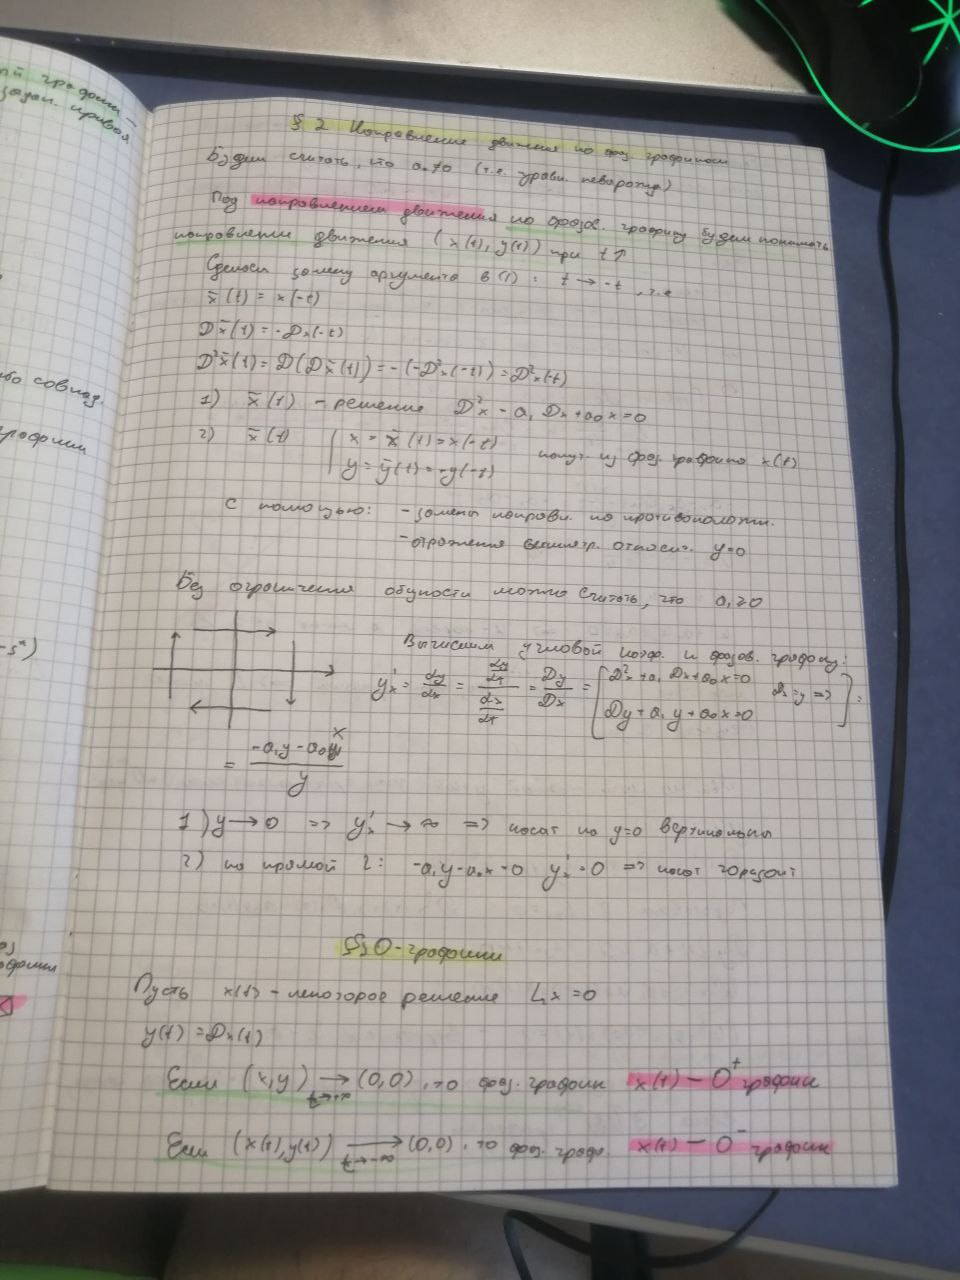 ой графии –
задан. кривая
либо совпад.
графики
-s*)
§ 2 Направление движения по фаз. графикам
Будем считать, что a₀≠0 (т.е. уравн. невырожд)
Под направлением движения по фазов. графику будем понимать
направление движения (x(t), y(t)) при t↑
Сделаем замену аргумента в (1): t → -t, т.е
x̄(t) = x(-t)
Dx̄(t) = -Dx(-t)
D²x̄(t) = D(Dx̄(t)) = -(-D²x(-t)) = D²x(-t)
1) x̄(t) – решение D²x - a₁Dx + a₀x = 0
2) x̄(t) x = x̄(t) = x(-t) получ. из фаз. графика x(t)
y = ȳ(t) = -y(-t)
с помощью: - замены направл. на противополож.
- отражения относит. y=0
Без ограничения общности можно считать, что a₁≥0
Вычислим угловой коэф. к фазов. графику:
y'ₓ = dy/dx = (dy/dt)/(dx/dt) = Dy/Dx = [D²x + a₁Dx + a₀x = 0 Dx = y =>
Dy + a₁y + a₀x = 0] =
= (-a₁y - a₀x)/y
1) y → 0 => y'ₓ → ∞ => касат на y=0 вертикальны
2) на прямой l: -a₁y - a₀x = 0 y'ₓ = 0 => касат горизонт
§3 О-графики
Пусть x(t) – некоторое решение Lx = 0
y(t) = Dx(t)
Если (x,y) → (0,0), то фаз. график x(t) – O⁺ график
t→+∞
Если (x(t), y(t)) → (0,0), то фаз. графи. x(t) – O⁻ график
t→-∞